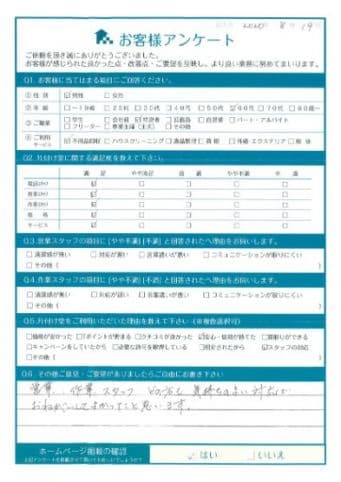 2020 8 19
お客様アンケート
ご依頼を頂き誠にありがとうございました。
お客様が感じられた良かった点・改善点・ご要望を反映し、より良い業務に努めてまいります。
Q1. お客様に当てはまる項目にご回答ください。
① 性 別 ☑男性 □女性
② 年 齢 □～19歳 □20代 □30代 □40代 □50代 ☑60代 □70代 □80歳～
③ ご職業 □学生 □会社員 ☑経営者 □公務員 □自営業 □パート・アルバイト
□フリーター □専業主婦（主夫） □その他
④ ご利用サービス ☑不用品回収 □ハウスクリーニング □遺品整理 □買取 □外構・エクステリア □解体
Q2. 片付け堂に関する満足度を教えて下さい。
満足 やや満足 普通 やや不満 不満
電話対応 ☑ □ □ □ □
営業対応 ☑ □ □ □ □
作業対応 ☑ □ □ □ □
価格 ☑ □ □ □ □
サービス ☑ □ □ □ □
Q3. 営業スタッフの項目に［やや不満］［不満］と回答された方へ理由をお伺いします。
□清潔感が無い □対応が遅い □言葉遣いが悪い □コミュニケーションが取りにくい
□その他（ ）
Q4. 作業スタッフの項目に［やや不満］［不満］と回答された方へ理由をお伺いします。
□清潔感が無い □対応が遅い □言葉遣いが悪い □コミュニケーションが取りにくい
□その他（ ）
Q5. 片付け堂をご利用いただいた理由を教えて下さい（※複数選択可）
□価格が安かった □ポイントが貯まる □クチコミが良かった ☑安心・信頼が持てた □買取りができる
□キャンペーンをしていたから □必要な許可を取得している □紹介されたから ☑スタッフの対応
□その他（ ）
Q6. その他ご意見・ご要望がありましたらご自由にお書き下さい
営業、作業スタッフ どの方も気持ちのよい対応で
おねがいしてよかったと思います。
ホームページ掲載の確認
☑はい □いいえ